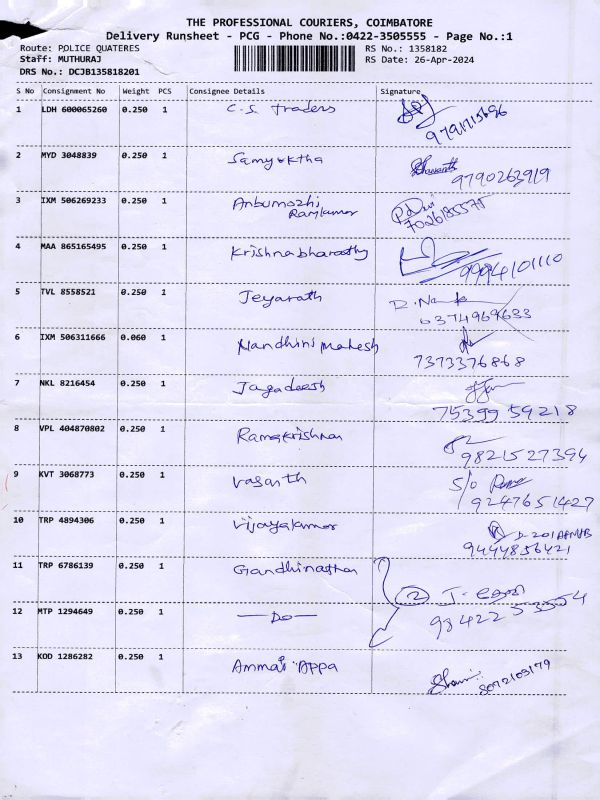 THE PROFESSIONAL COURIERS, COIMBATORE
Delivery Runsheet - PCG - Phone No.:0422-3505555 - Page No.:1
Route: POLICE QUATERES RS No.: 1358182
Staff: MUTHURAJ RS Date: 26-Apr-2024
DRS No.: DCJB135818201
S No Consignment No Weight PCS Consignee Details Signature
1 LDH 600065260 0.250 1 C.S. traders
9791715696
2 MYD 3048839 0.250 1 Samyuktha
9790263919
3 IXM 506269233 0.250 1 Anbumozhi
Ramkumar
7026185575
4 MAA 865165495 0.250 1 Krishnabharathy
9994101110
5 TVL 8558521 0.250 1 Jeyarath
6374969633
6 IXM 506311666 0.060 1 Nandhini Mahesh
7373376868
7 NKL 8216454 0.250 1 Jagadeesh
75399 59218
8 VPL 404870802 0.250 1 Ramakrishnan
9821527394
9 KVT 3068773 0.250 1 Vasanth S/o
9247651427
10 TRP 4894306 0.250 1 Vijayakumar
9444856421
11 TRP 6786139 0.250 1 Gandhinathan
2
12 MTP 1294649 0.250 1 — Do —
98422 53554
13 KOD 1286282 0.250 1 Ammai Appa
8072103179